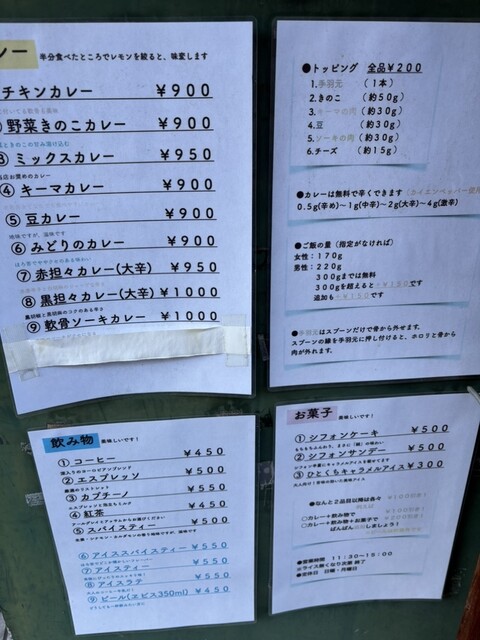 レー 半分食べたところでレモンを絞ると、味変します
チキンカレー ￥900
野菜きのこカレー ￥900
ミックスカレー ￥950
当店お奨めのカレー
④ キーマカレー ￥900
⑤ 豆カレー ￥900
地味ですが、滋味です
⑥ みどりのカレー ￥900
⑦ 赤担々カレー(大辛) ￥950
⑧ 黒担々カレー(大辛) ￥1000
⑨ 軟骨ソーキカレー ￥1000
●トッピング 全品￥200
1.手羽元 （1本）
2.きのこ （約50g）
3.キーマの肉（約30g）
4.豆 （約30g）
5.ソーキの肉（約30g）
6.チーズ （約15g）
●カレーは無料で辛くできます（カイエンペッパー使用
0.5g(辛め)〜1g(中辛)〜2g(大辛)〜4g(激辛)
●ご飯の量（指定がなければ）
女性：170g
男性：220g
300gまでは無料
300gを超えると＋￥150です
追加も＋￥150です
●手羽元はスプーンだけで骨から外せます。
スプーンの縁を手羽元に押し付けると、ホロリと骨から
肉が外れます。
飲み物 美味しいです！
① コーヒー ￥450
② エスプレッソ ￥500
③ カプチーノ ￥550
④ 紅茶 ￥450
⑤ スパイスティー ￥500
⑥ アイススパイスティー ￥550
⑦ アイスティー ￥500
⑧ アイスラテ ￥550
⑨ ビール(ヱビス350ml) ￥500
お菓子 美味しいです！
① シフォンケーキ ￥500
② シフォンサンデー ￥500
③ ひとくちキャラメルアイス ￥300
●なんと2品目以降は各々
○カレー＋飲み物で
○カレー＋飲み物＋お菓子で
ばんばん しましょう！
●営業時間 11：30〜15：00
※ライス無くなり次第 終了
●定休日 日曜・月曜日